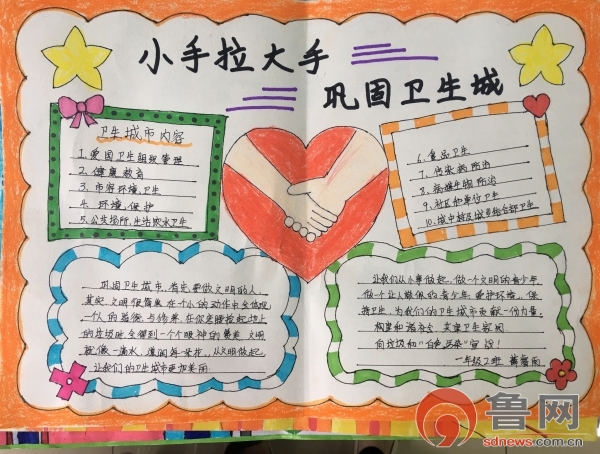 小手拉大手
巩固卫生城
卫生城市内容
1. 爱国卫生组织管理
2. 健康教育
3. 市容环境卫生
4. 环境保护
5. 公共场所、生活饮水卫生
6. 食品卫生
7. 传染病防治
8. 病媒生物防治
9. 社区和单位卫生
10. 城中村及城乡结合部卫生
巩固卫生城市,首先要做文明的人,
其实,文明很简单,在小小的动作中会体现
一个人的道德与修养,在你弯腰捡起地上
的垃圾时,会得到一个个眼神的赞美,文明
就像一滴水,滋润每
从文明做起,
让我们的卫生城市更加美丽
让我们从小事做起,做一个文明的青少年
做个让人敬佩的青少年,爱护环境,保
持卫生,为我们的卫生城市贡献一份力量,
构建和谐社会,共享卫生家园
向垃圾和“白色污染”宣战!
一年级2班
鲁网
sdnews.com.cn